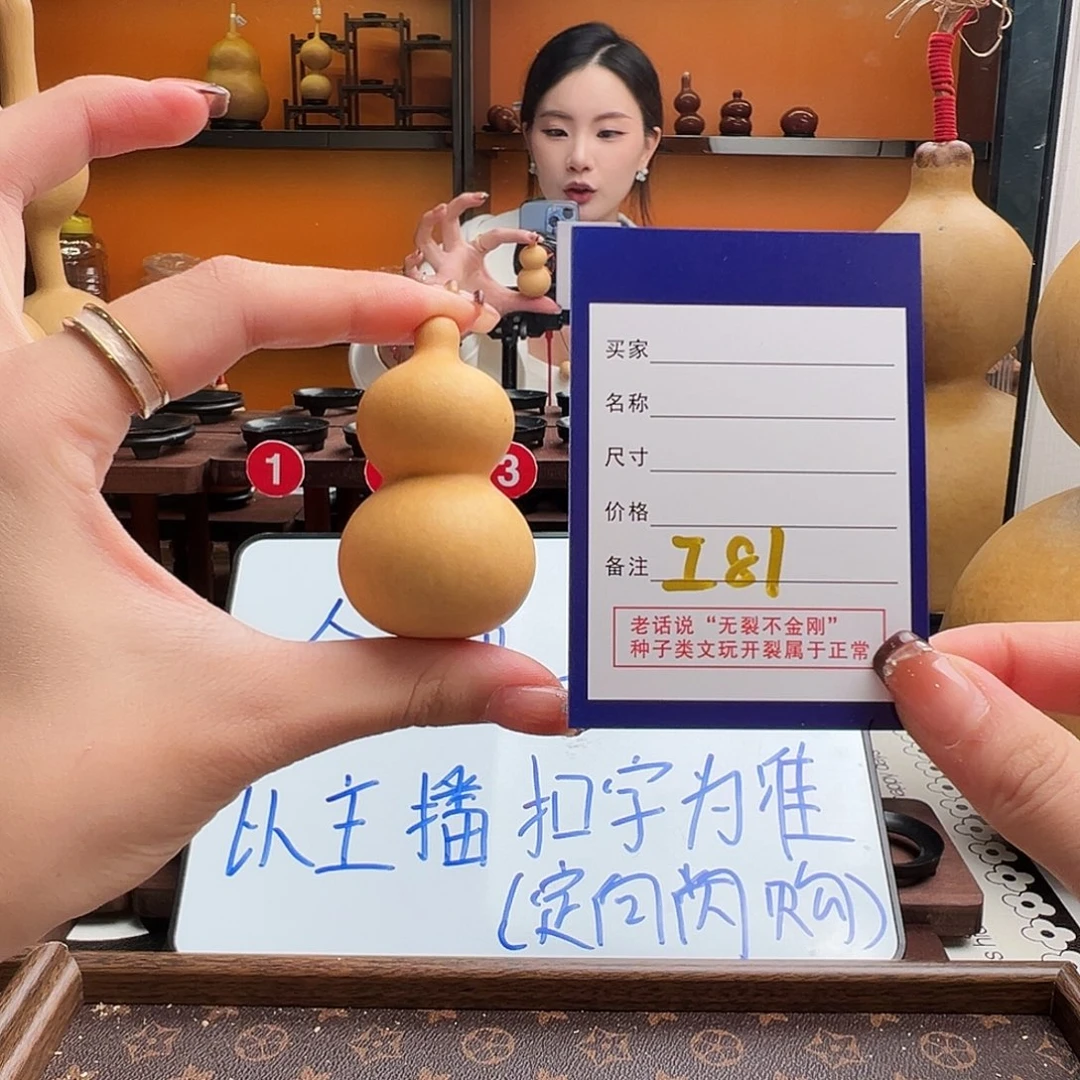 1
3
买家
名称
尺寸
价格
备注 I81
老话说“无裂不金刚”
种子类文玩开裂属于正常
以主播扣字为准
(定向闪购)